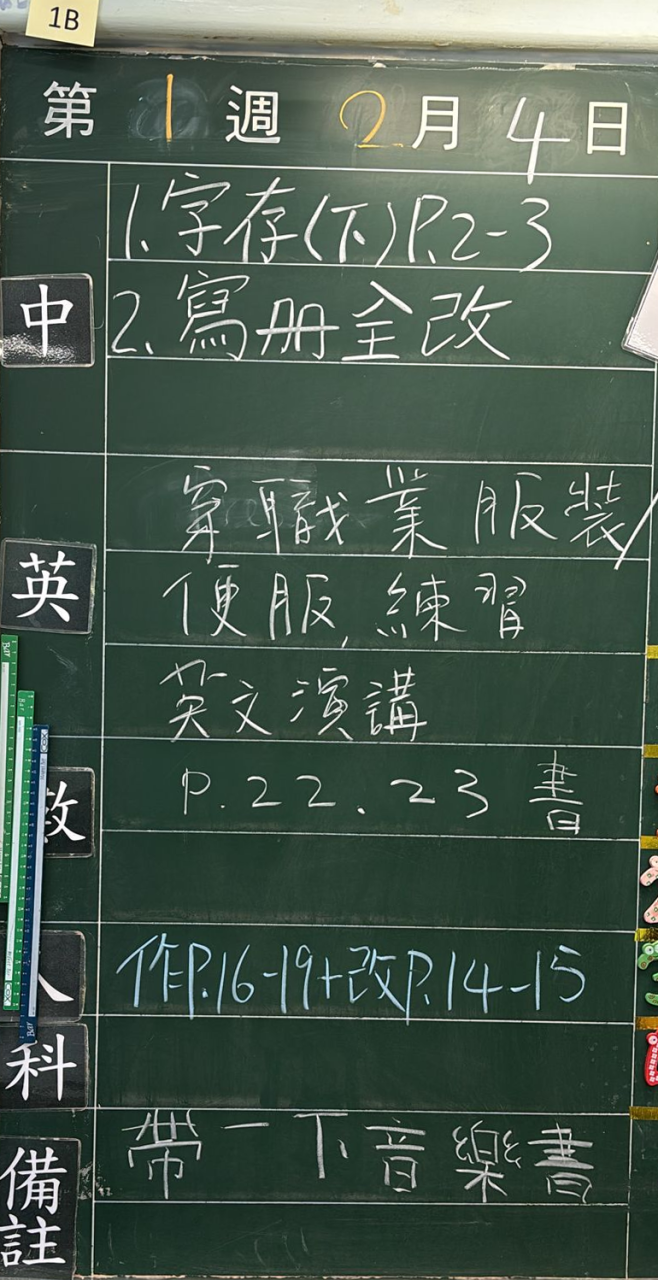 1B
第 1 週 2 月 4 日
中
1. 字存(下)P.2-3
2. 寫册全改
英
穿職業服裝/
便服,練習
英文演講
P.22.23 書
作P.16-19+改P.14-15
科
備註
帶一下音樂書